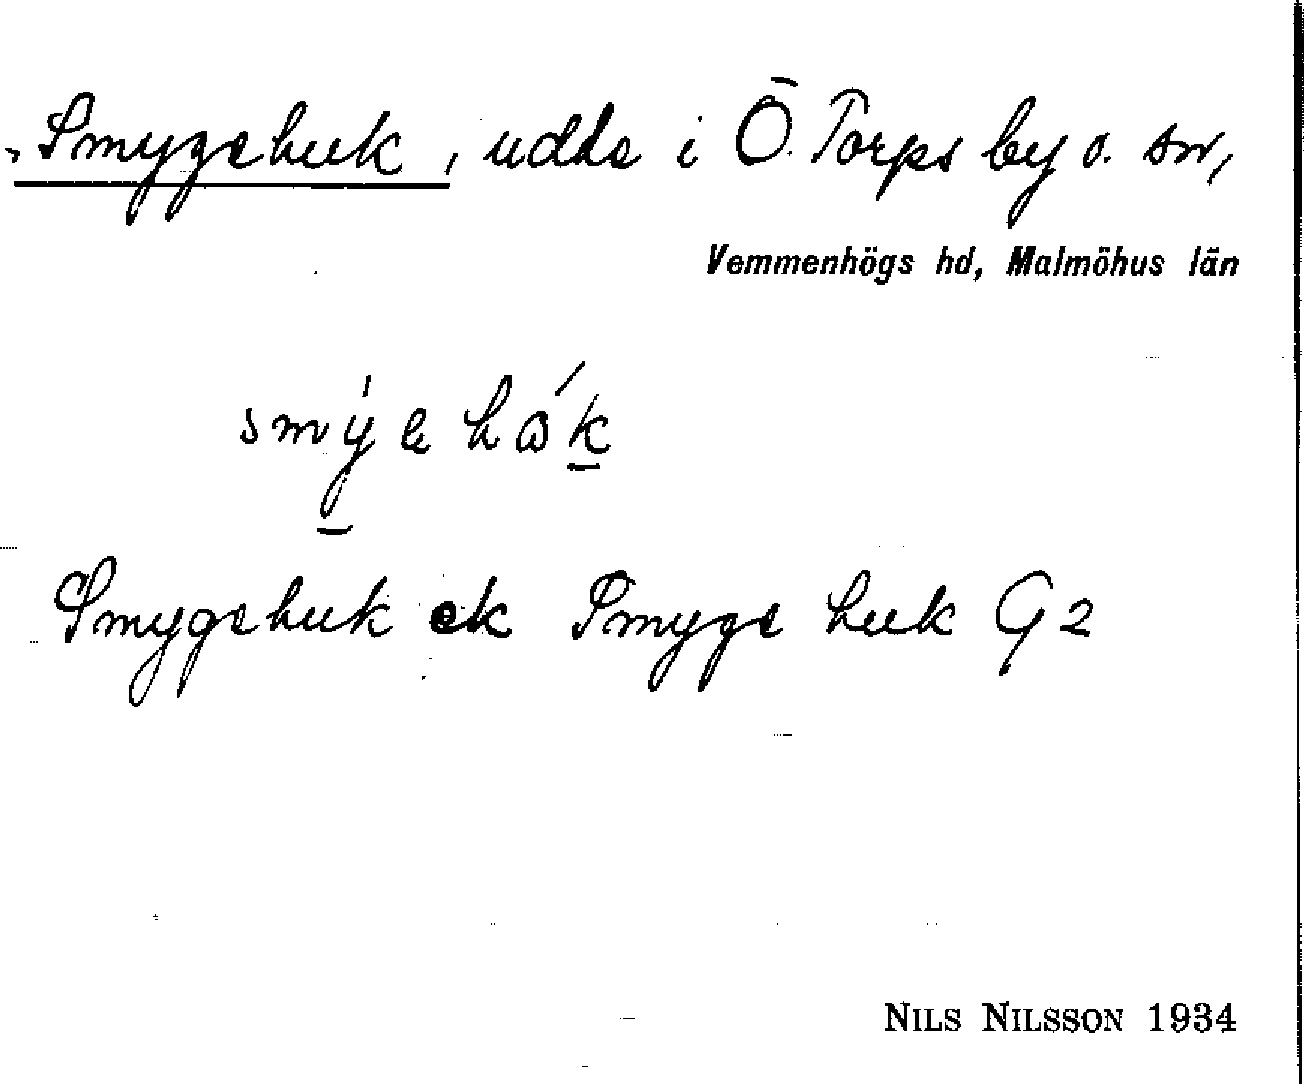 Smygehuk, udde i Ö. Torps by o. sn,
Vemmenhögs hd, Malmöhus län
Smygehuk ek Smyge huk G2
NILS NILSSON 1934